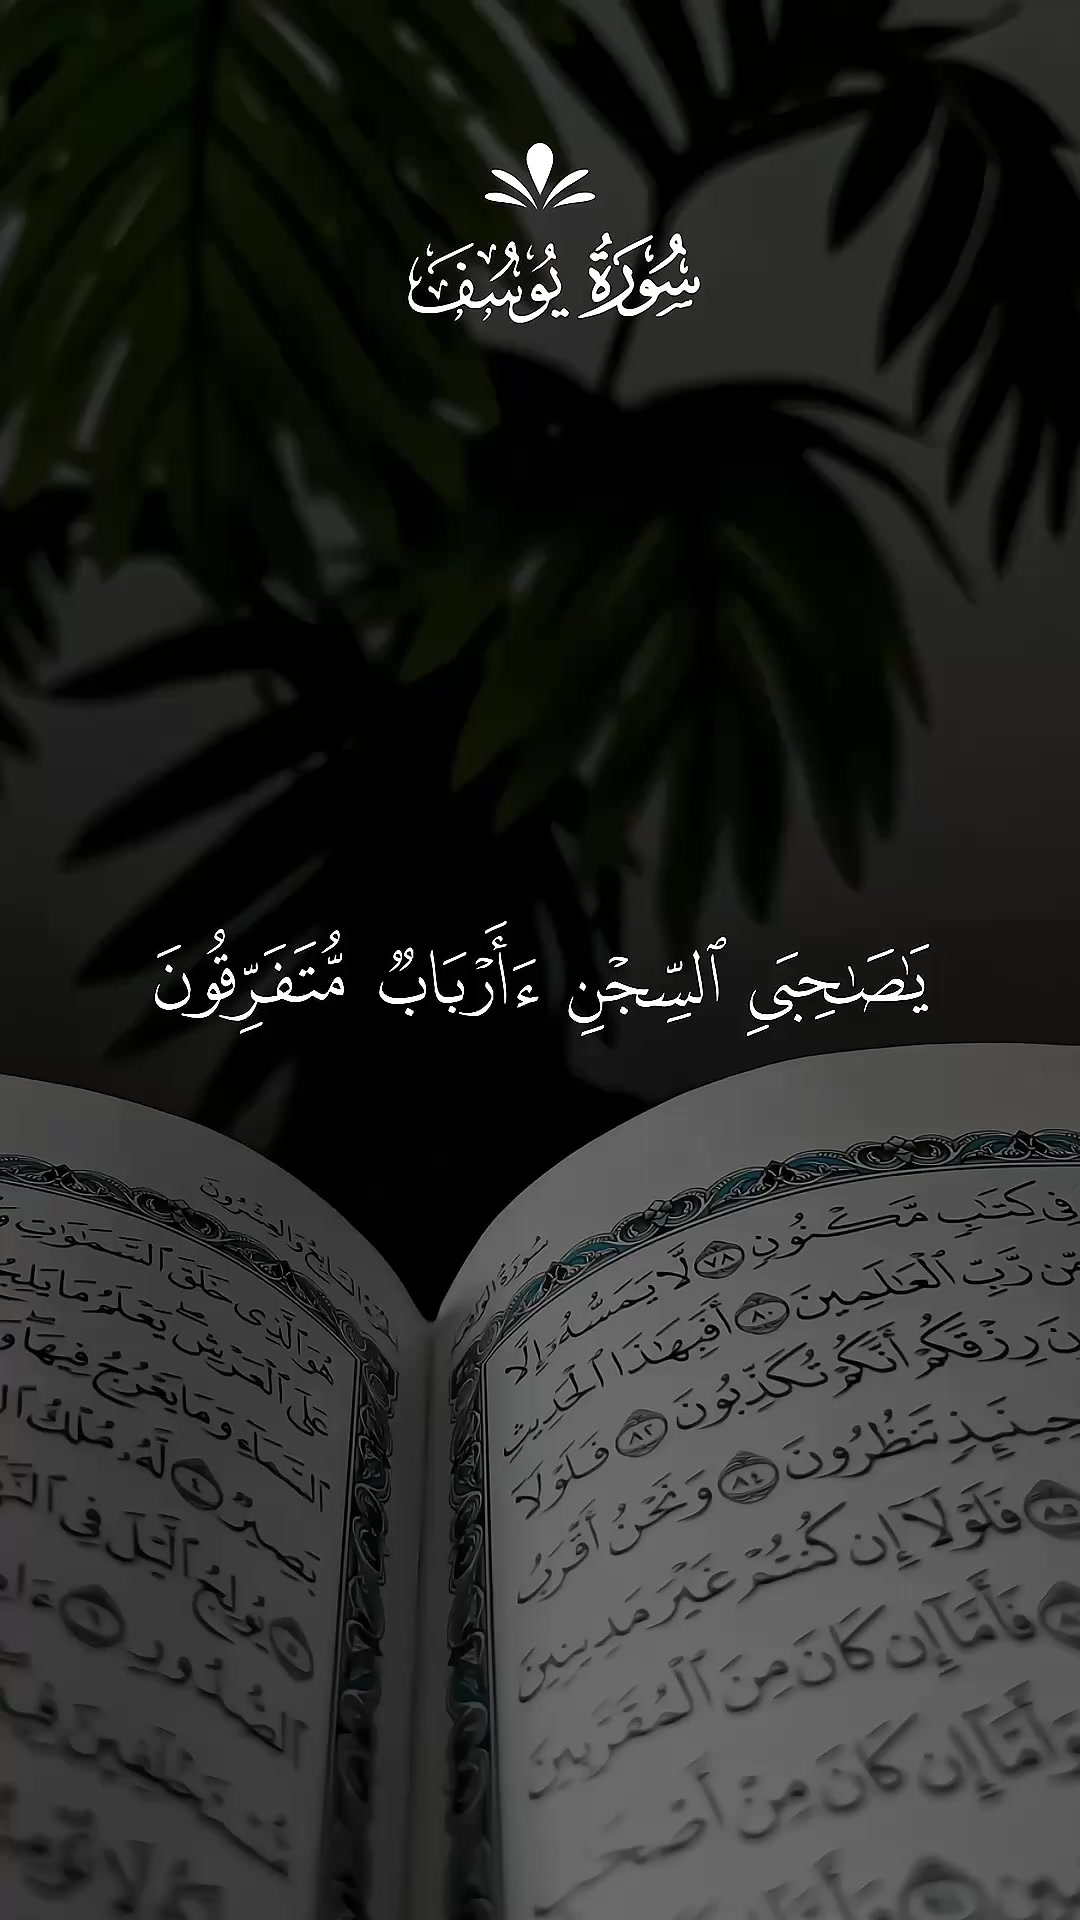 سُورَةُ يُوسُفَ
يَٰصَٰحِبَىِ ٱلسِّجْنِ ءَأَرْبَابٌ مُّتَفَرِّقُونَ
فِى كِتَٰبٍ مَّكْنُونٍ ٧٨ لَّا يَمَسُّهُۥٓ إِلَّا
مِّن رَّبِّ ٱلْعَٰلَمِينَ ٨٠ أَفَبِهَٰذَا ٱلْحَدِيثِ
رِزْقَكُمْ أَنَّكُمْ تُكَذِّبُونَ ٨٢ فَلَوْلَآ
حِينَئِذٍ تَنظُرُونَ ٨٤ وَنَحْنُ أَقْرَبُ
٨٥ فَلَوْلَآ إِن كُنتُمْ غَيْرَ مَدِينِينَ
فَأَمَّآ إِن كَانَ مِنَ ٱلْمُقَرَّبِينَ
وَأَمَّآ إِن كَانَ مِنْ أَصْحَٰبِ
هُوَ ٱلَّذِى خَلَقَ ٱلسَّمَٰوَٰتِ
عَلَى ٱلْعَرْشِ يَعْلَمُ مَا يَلِجُ
ٱلسَّمَآءِ وَمَا يَعْرُجُ فِيهَا
بَصِيرٌ ٤ لَّهُۥ مُلْكُ
٥ يُولِجُ ٱلَّيْلَ فِى
ٱلصُّدُورِ ٦
مُّسْتَخْلَفِينَ فِيهِ